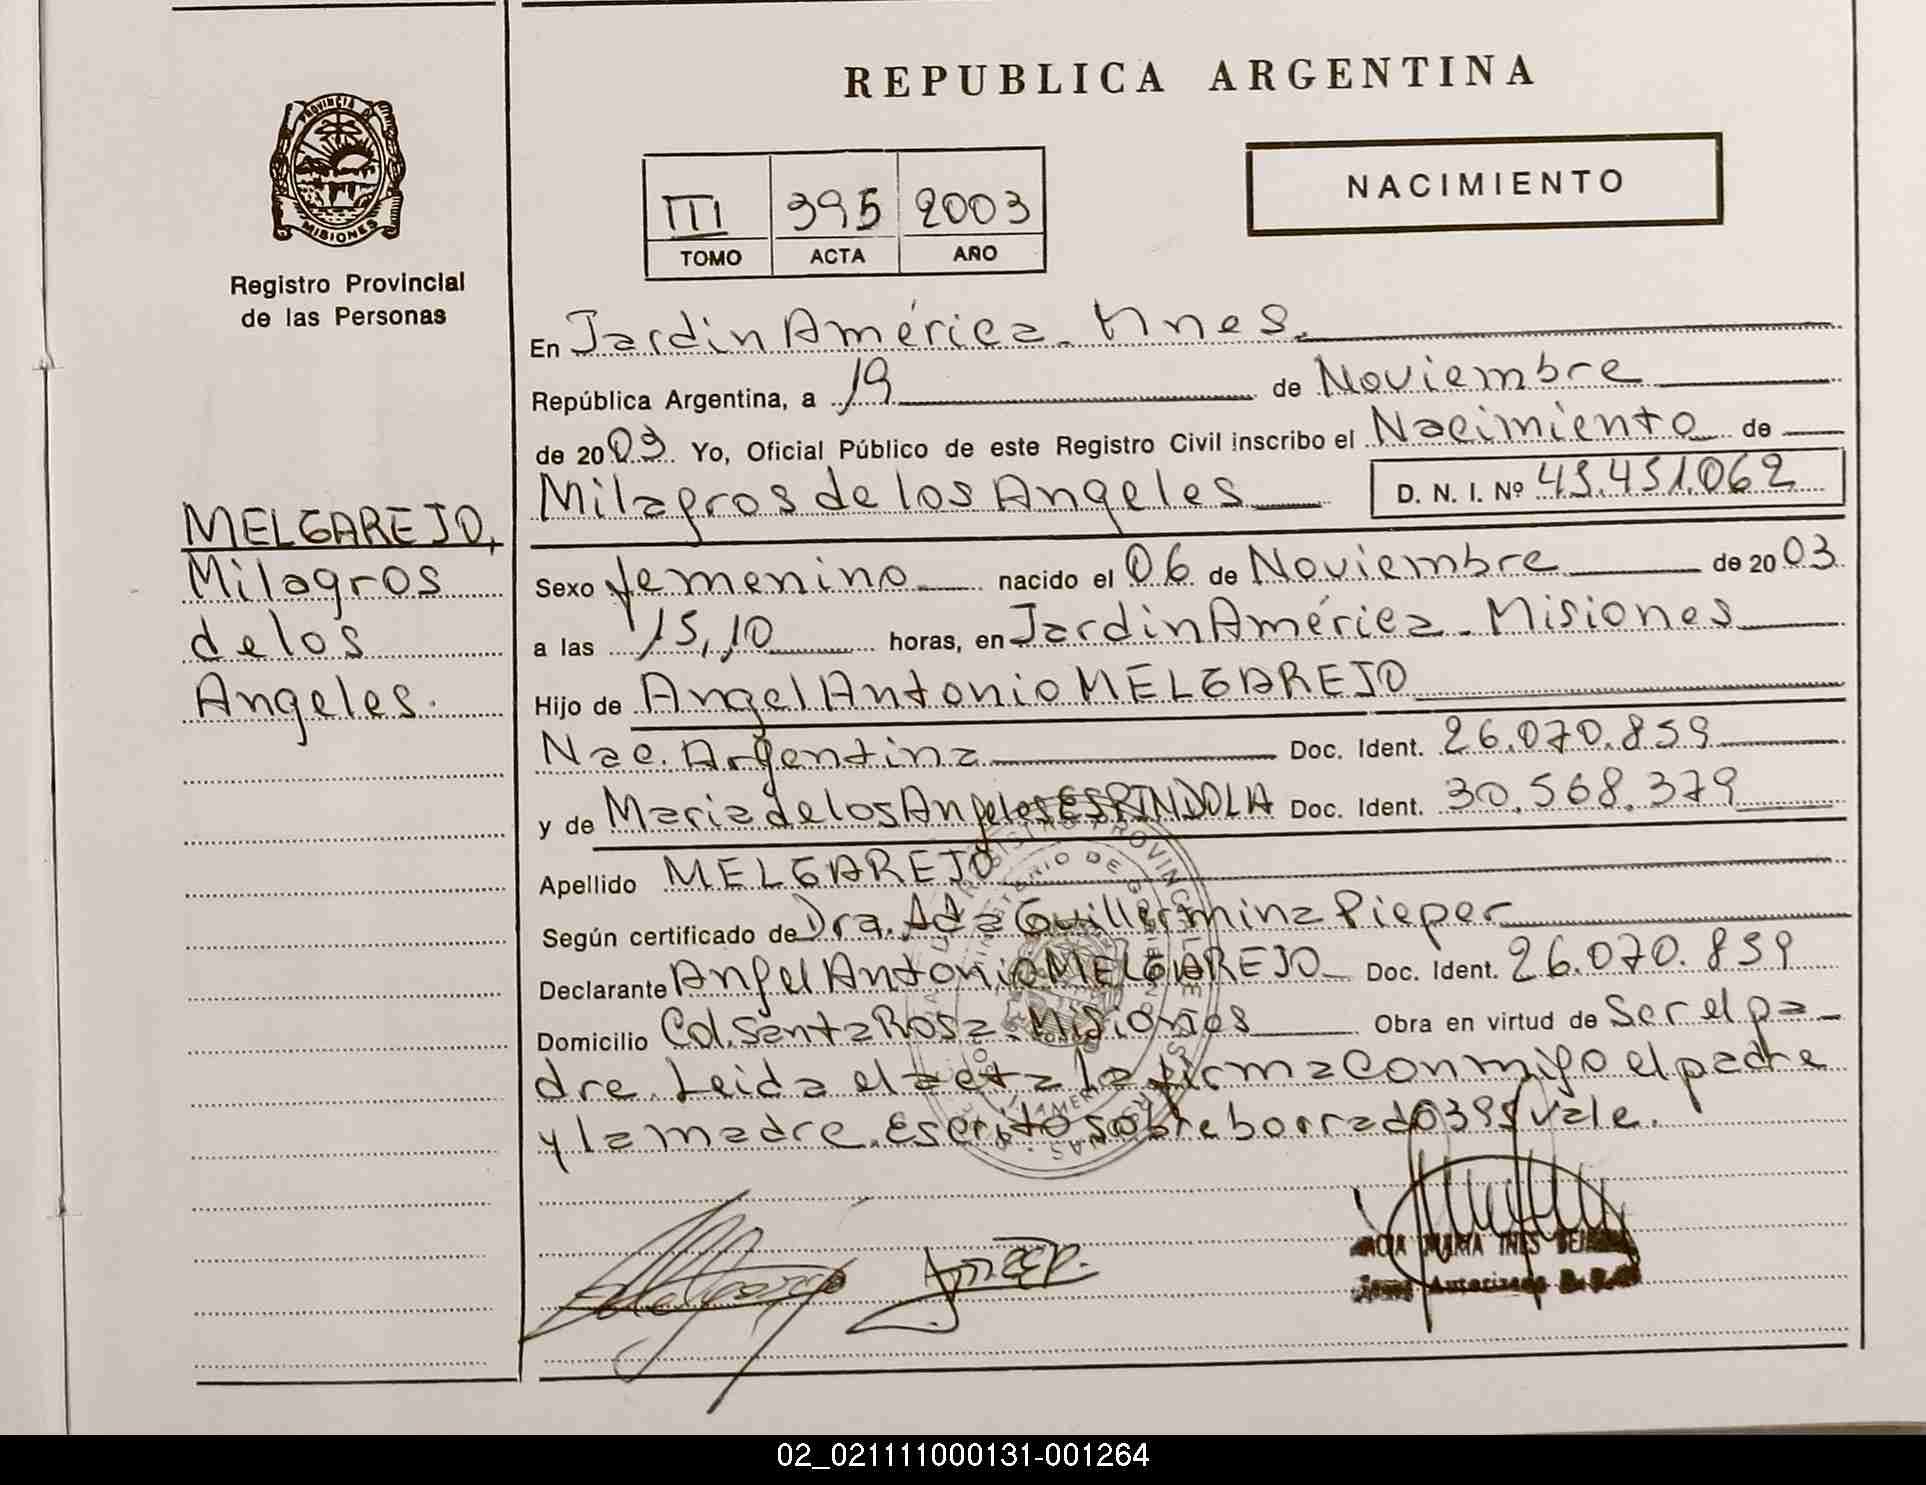 REPUBLICA ARGENTINA
PROVINCIA DE
MISIONES
Registro Provincial
de las Personas
NACIMIENTO
III 395 2003
TOMO ACTA AÑO
En Jardin América. Mnes.
República Argentina, a 19 de Noviembre
de 2003 Yo, Oficial Público de este Registro Civil inscribo el Nacimiento de
Milagros de los Angeles D. N. I. Nº 45.451.062
MELGAREJO,
Milagros
de los
Angeles.
Sexo femenino nacido el 06 de Noviembre de 2003
a las 15,10 horas, en Jardin América. Misiones
Hijo de Angel Antonio MELGAREJO
Nac. Argentina Doc. Ident. 26.070.859
y de Maria de los Angeles ESPINDOLA Doc. Ident. 30.568.379
Apellido MELGAREJO
Según certificado de Dra. Ada Guillermina Pieper
Declarante Angel Antonio MELGAREJO Doc. Ident. 26.070.859
Domicilio Col. Santa Rosa. Misiones Obra en virtud de Ser el pa-
dre. Leida el acta la firma conmigo el padre
y la madre. Escrito sobre borrado 395 vale.
MARIA INES
02_021111000131-001264